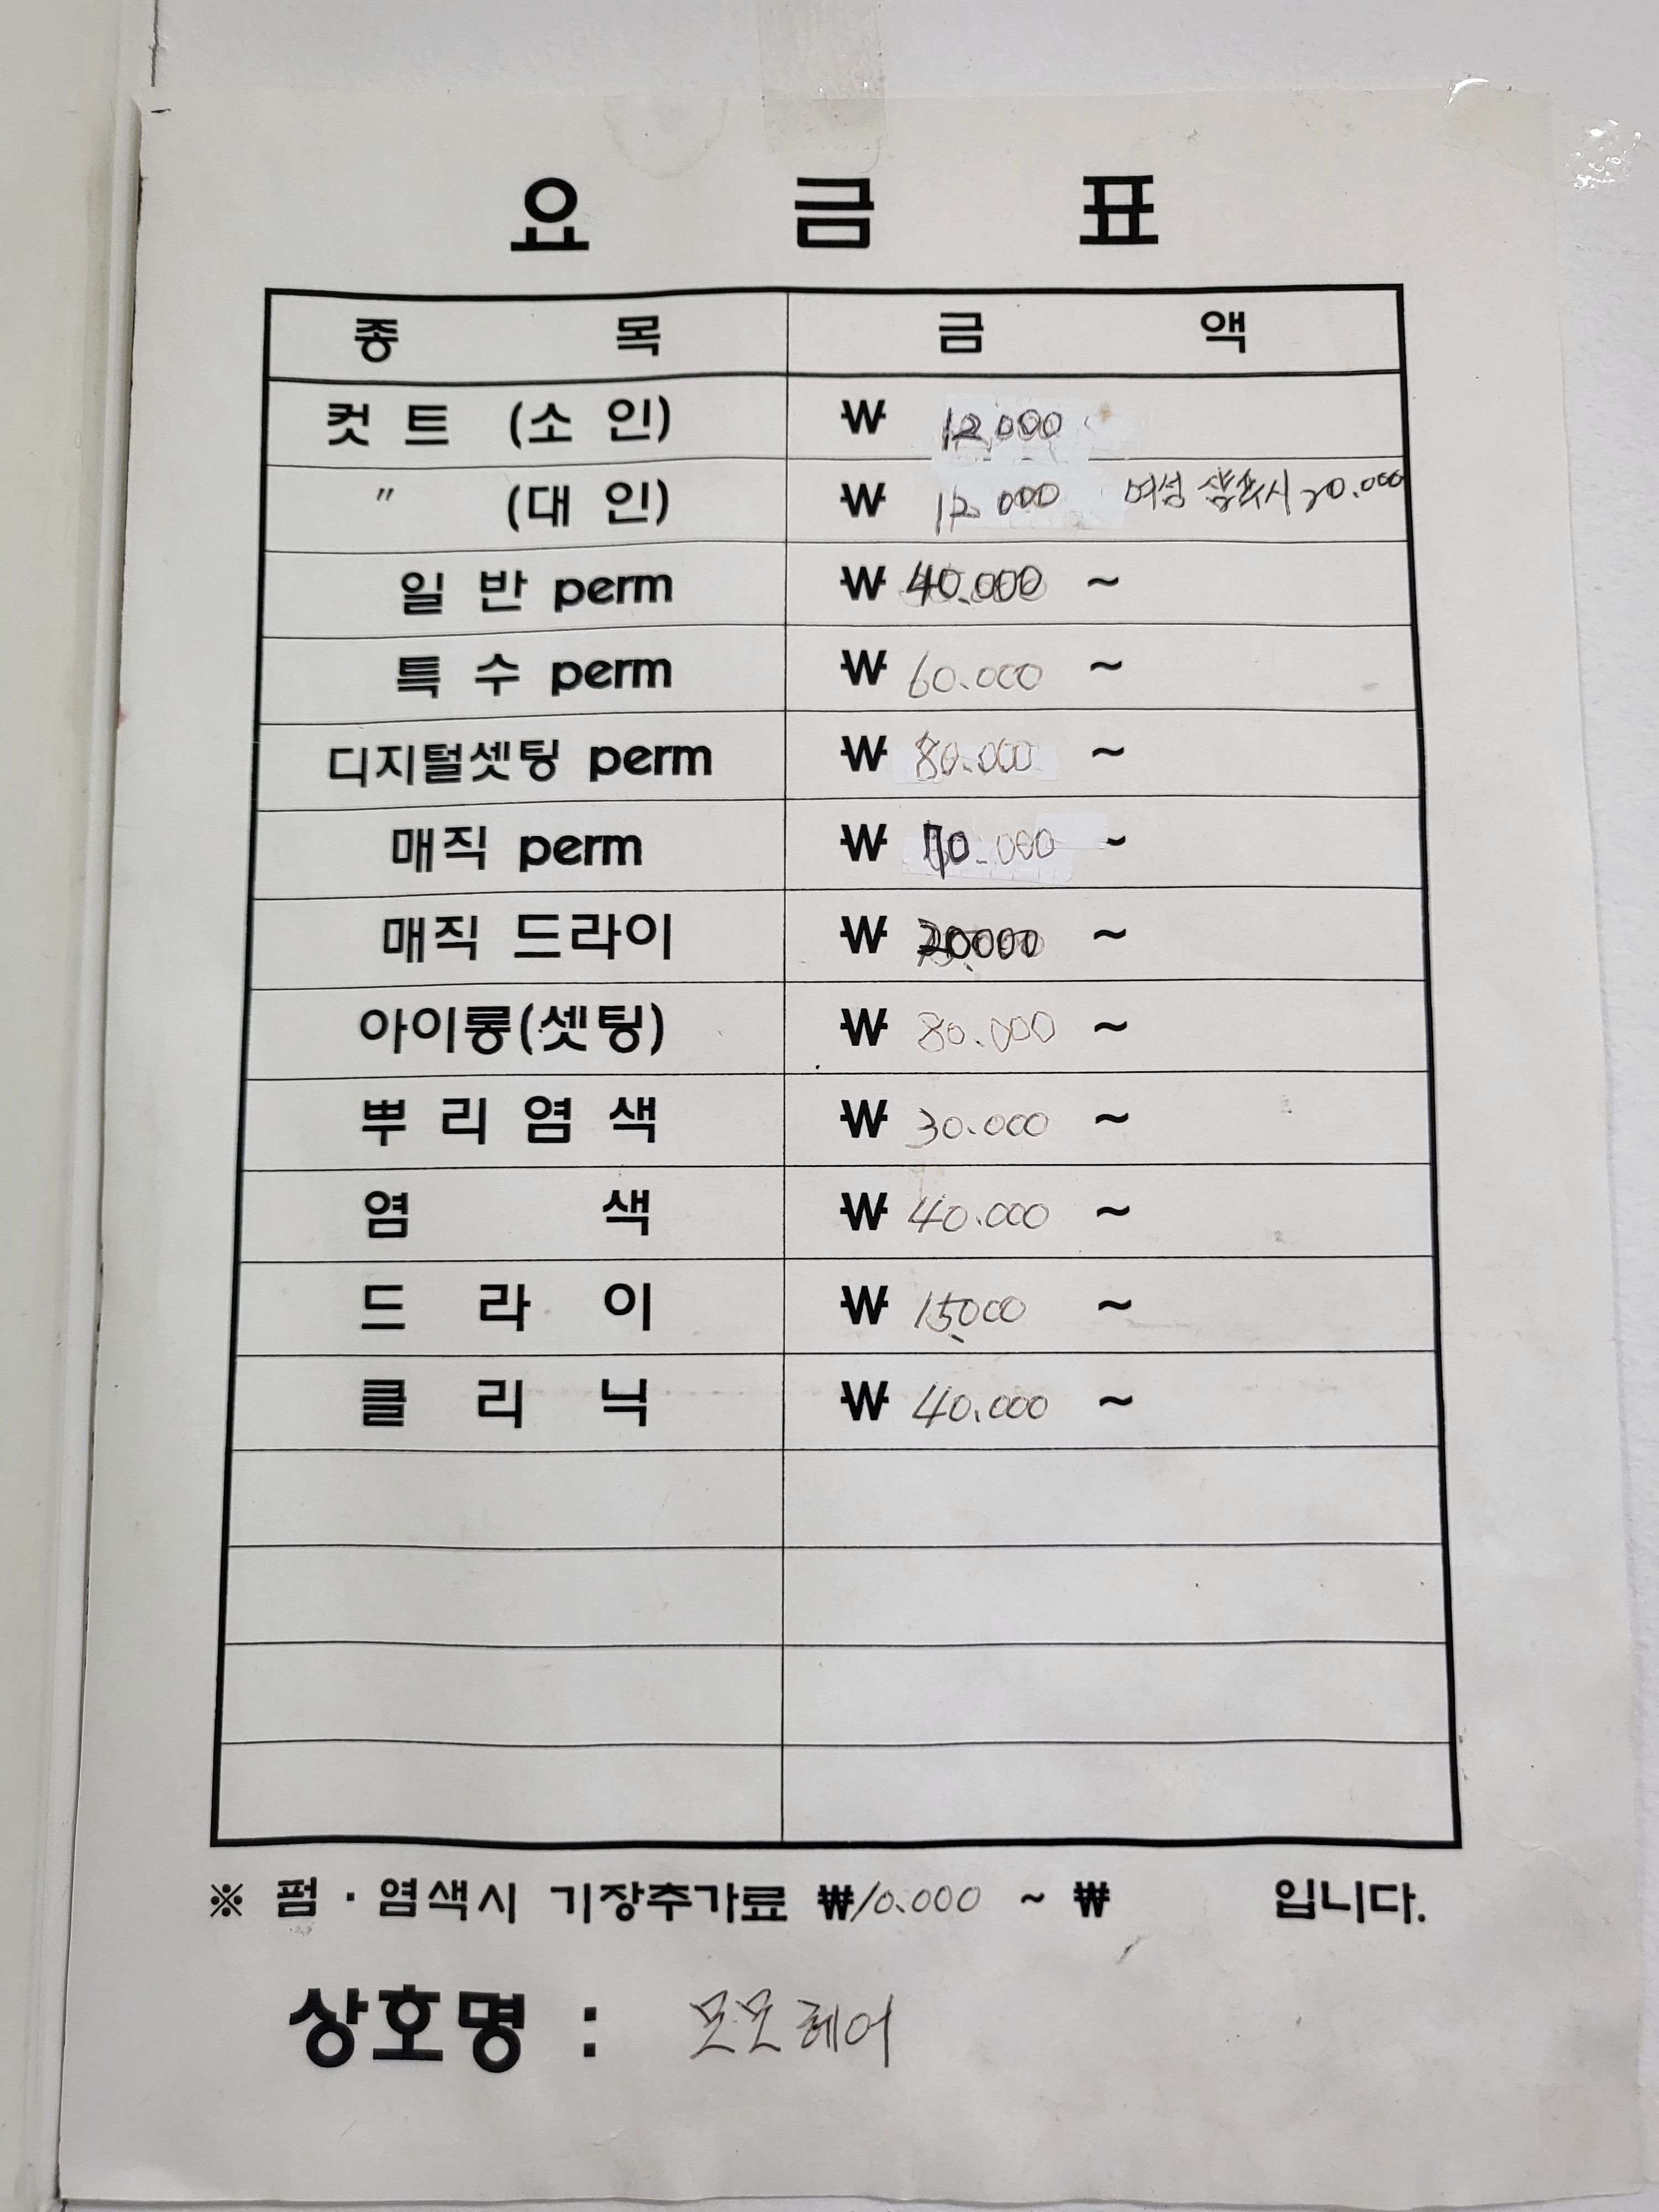 요 금 표
종 목 금 액
컷 트 (소 인) ₩ 12.000
" (대 인) ₩ 12.000 여성 샴푸시 20.000
일 반 perm ₩ 40.000 ~
특 수 perm ₩ 60.000 ~
디지털셋팅 perm ₩ 80.000 ~
매직 perm ₩ 70.000 ~
매직 드라이 ₩ 20000 ~
아이롱(셋팅) ₩ 80.000 ~
뿌 리 염 색 ₩ 30.000 ~
염 색 ₩ 40.000 ~
드 라 이 ₩ 15.000 ~
클 리 닉 ₩ 40.000 ~
※ 펌 · 염색시 기장추가료 ₩10.000 ~ ₩ 입니다.
상호명 : 모모헤어